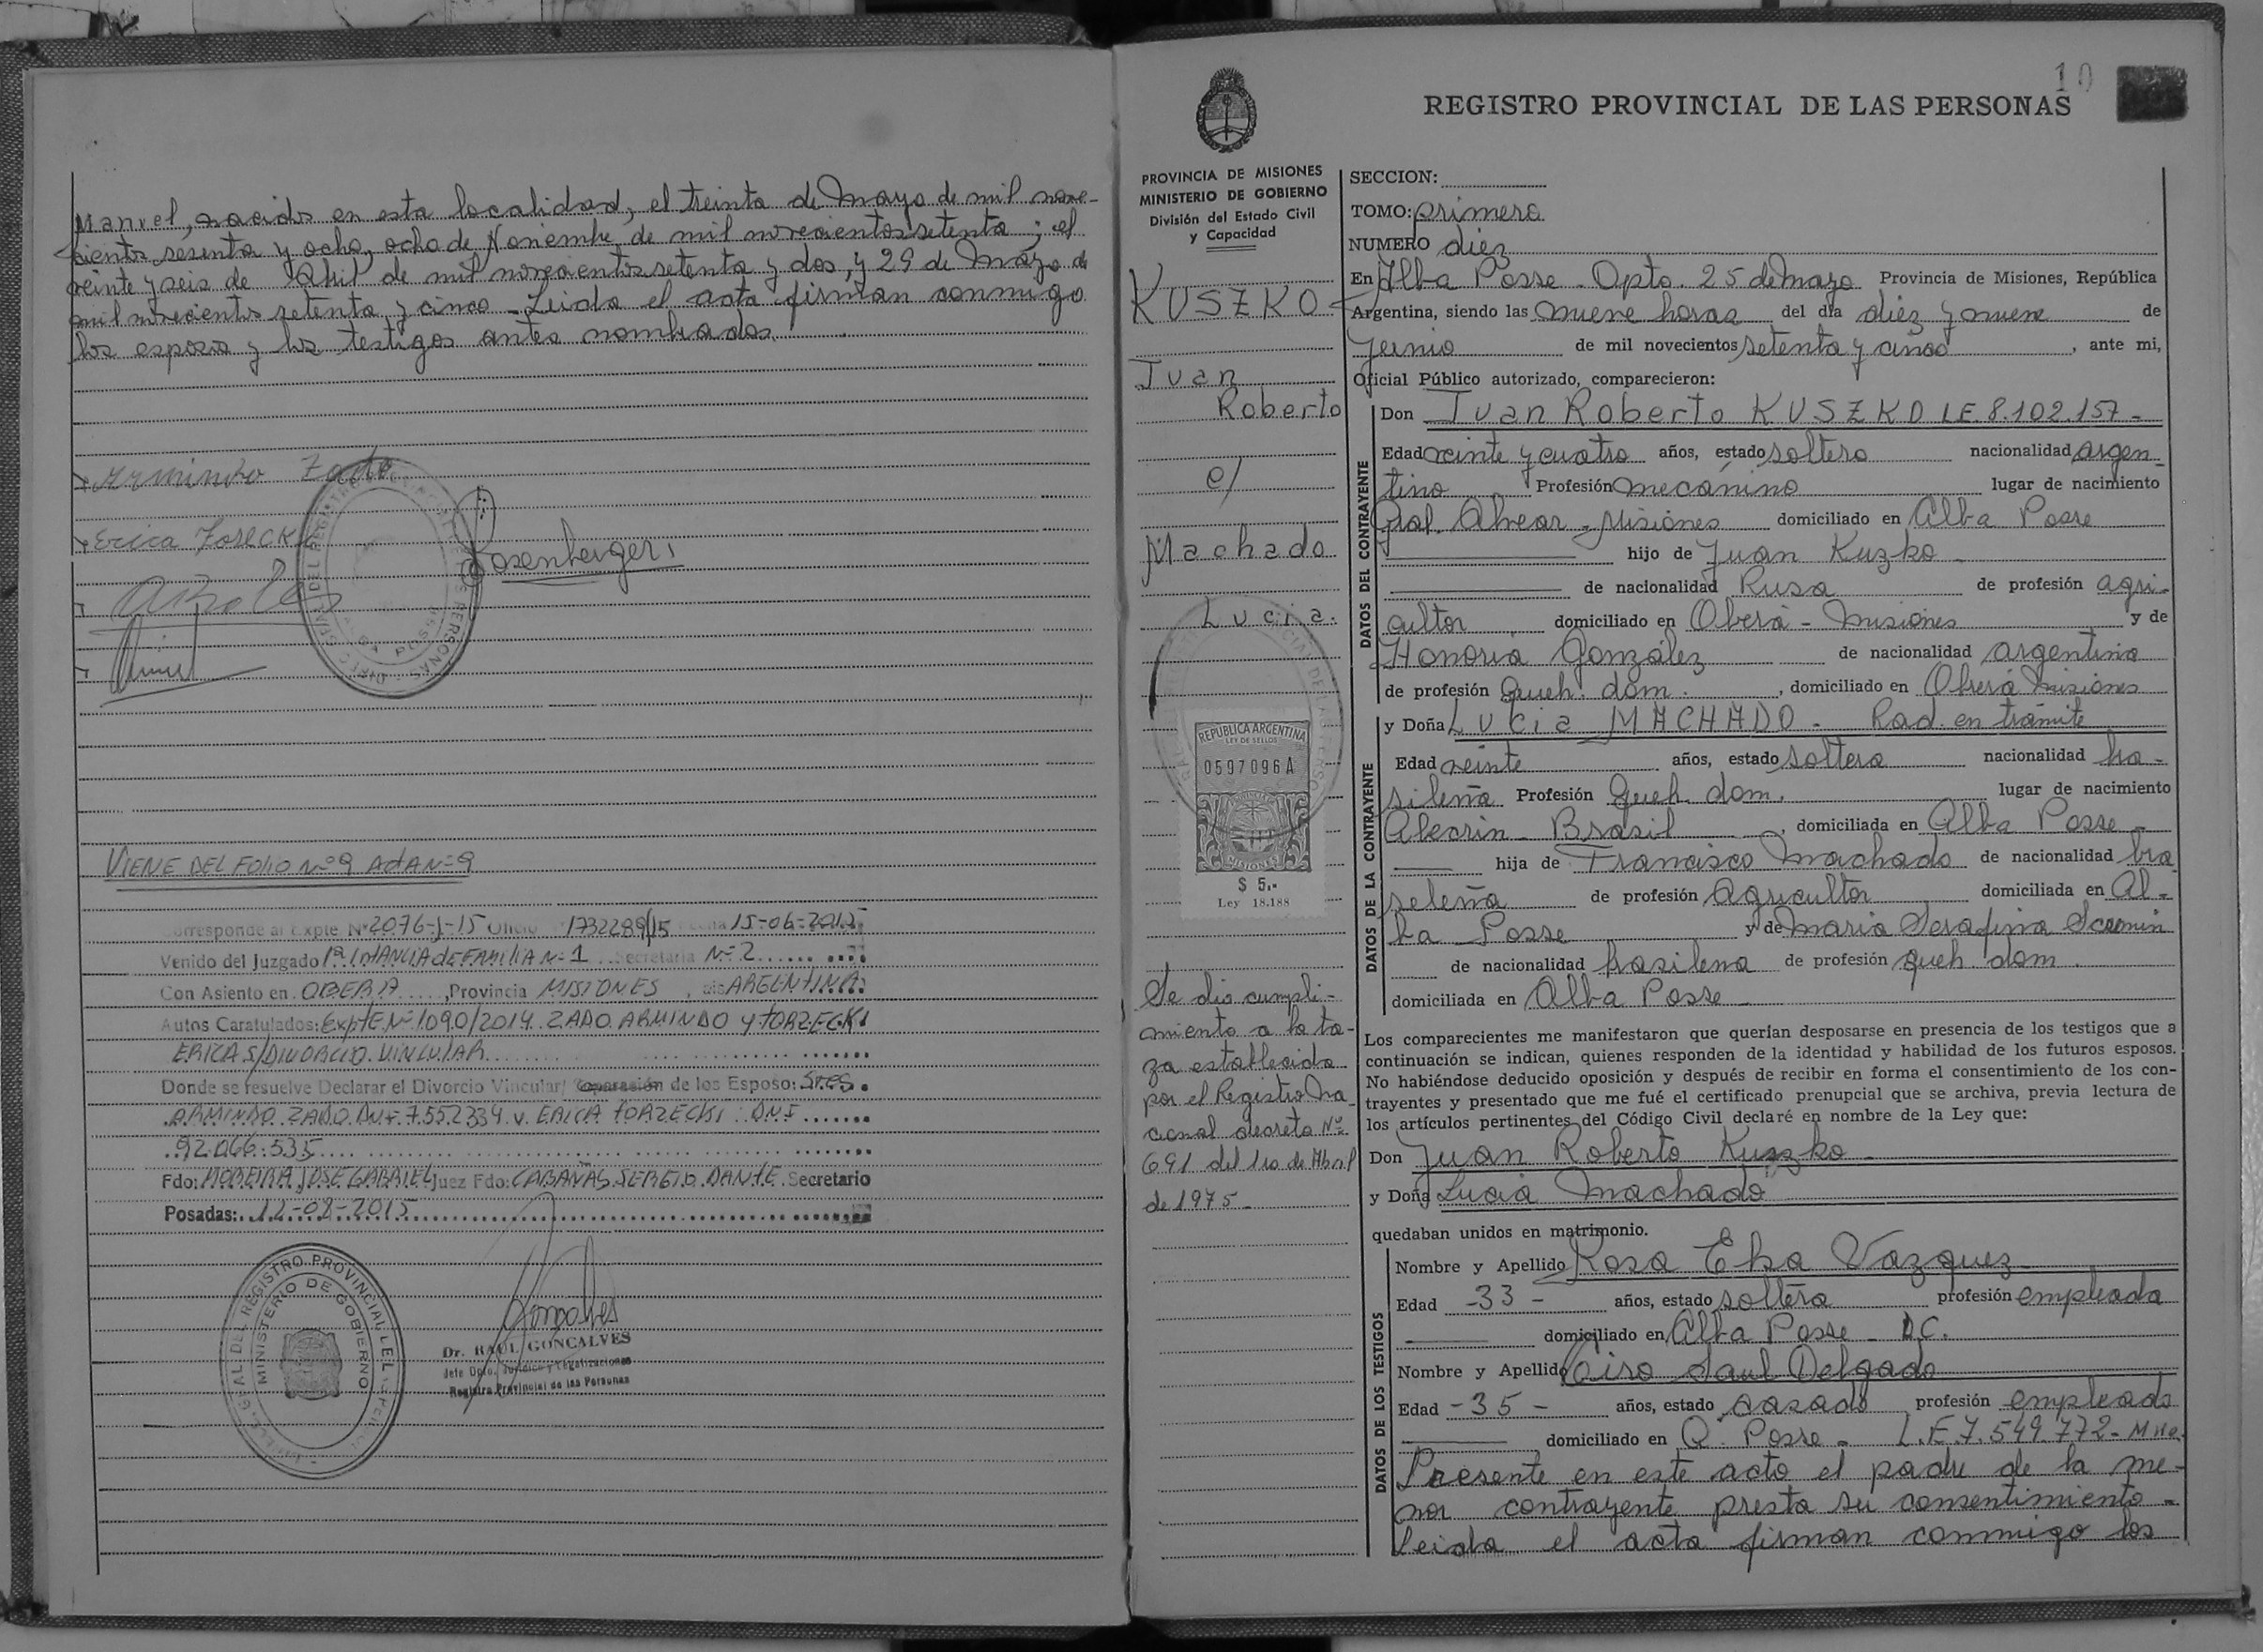 Manuel, nacidos en esta localidad, el treinta de Mayo de mil nove-
cientos sesenta y ocho, ocho de Noviembre de mil novecientos setenta; el
veinte y seis de Abril de mil novecientos setenta y dos, y 29 de Mayo de
mil novecientos setenta y cinco - Leida el acta firman conmigo
los esposos y los testigos antes nombrados.
Armindo Zado
Erica Forecki
Rosenberger
VIENE DEL FOLIO Nº 9 ActA Nº 9
Corresponde al Expte. Nº 2076-J-15 Oficio 1732289/15 Fecha 15-06-2015
Venido del Juzgado 1ª. INTANCIA de FAMILIA Nº 1 Secretaria Nº 2
Con Asiento en OBERA, Provincia MISIONES, ARGENTINA
Autos Caratulados: ExptE Nº 1090/2014. ZADO ARMINDO y FORZECKI
ERICA S/DIVORCIO VINCULAR
Donde se resuelve Declarar el Divorcio Vincular/ Separación de los Esposo: Sres.
ARMINDO ZADO DNI. 7.552.334 y ERICA FORZECKI DNI
92.066.535
Fdo: MOREIRA JOSE GABRIEL Juez Fdo: CABAÑAS SERGIO DANTE Secretario
Posadas: 12-08-2015
MINISTERIO DE GOBIERNO
Dr. RAUL GONCALVES
Jefe Dpto. Jurídico y Legalizaciones
Registro Provincial de las Personas
10
REGISTRO PROVINCIAL DE LAS PERSONAS
PROVINCIA DE MISIONES
MINISTERIO DE GOBIERNO
División del Estado Civil
y Capacidad
KUSZKO
Juan
Roberto
c/
Machado
Lucia.
REPUBLICA ARGENTINA
LEY DE SELLOS
0597096A
MISIONES
$ 5,-
Ley 18.188
Se dio cumpli-
miento a la ta-
za establecida
por el Registro Na-
cional decreto Nº
691 del 1ro de Abril
de 1975 -
SECCION:
TOMO: primero
NUMERO diez
En Alba Posse - Dpto. 25 de Mayo Provincia de Misiones, República
Argentina, siendo las nueve horas del día diez y nueve de
Junio de mil novecientos setenta y cinco, ante mi,
Oficial Público autorizado, comparecieron:
DATOS DEL CONTRAYENTE
Don Juan Roberto KUSZKO LE. 8.102.157 -
Edad veinte y cuatro años, estado soltero nacionalidad argen-
tino Profesión mecánino lugar de nacimiento
Gral. Alvear - Misiones domiciliado en Alba Posse
hijo de Juan Kuzko -
de nacionalidad Rusa de profesión agri-
cultor domiciliado en Oberá - Misiones y de
Honoria González de nacionalidad argentina
de profesión queh. dom., domiciliado en Oberá Misiones
DATOS DE LA CONTRAYENTE
y Doña Lucia MACHADO - Rad. en trámite
Edad veinte años, estado soltera nacionalidad bra-
sileña Profesión queh. dom. lugar de nacimiento
Alecrin - Brasil, domiciliada en Alba Posse -
hija de Francisco Machado de nacionalidad bra
seleña de profesión Agricultor domiciliada en Al-
ba Posse y de Maria Serafina
de nacionalidad brasilena de profesión queh. dom.
domiciliada en Alba Posse -
Los comparecientes me manifestaron que querían desposarse en presencia de los testigos que a
continuación se indican, quienes responden de la identidad y habilidad de los futuros esposos.
No habiéndose deducido oposición y después de recibir en forma el consentimiento de los con-
trayentes y presentado que me fué el certificado prenupcial que se archiva, previa lectura de
los artículos pertinentes del Código Civil declaré en nombre de la Ley que:
Don Juan Roberto Kuszko -
y Doña Lucia Machado
quedaban unidos en matrimonio.
DATOS DE LOS TESTIGOS
Nombre y Apellido Rosa Elsa Vazquez
Edad -33- años, estado soltera profesión empleada
domiciliado en Alba Posse - D.C.
Nombre y Apellido Ciro Saul Delgado
Edad -35- años, estado casado profesión empleado
domiciliado en A. Posse - L.E. 7.549.772 - Mnes.
Presente en este acto el padre de la me-
nor contrayente presta su consentimiento -
Leida el acta firman conmigo los